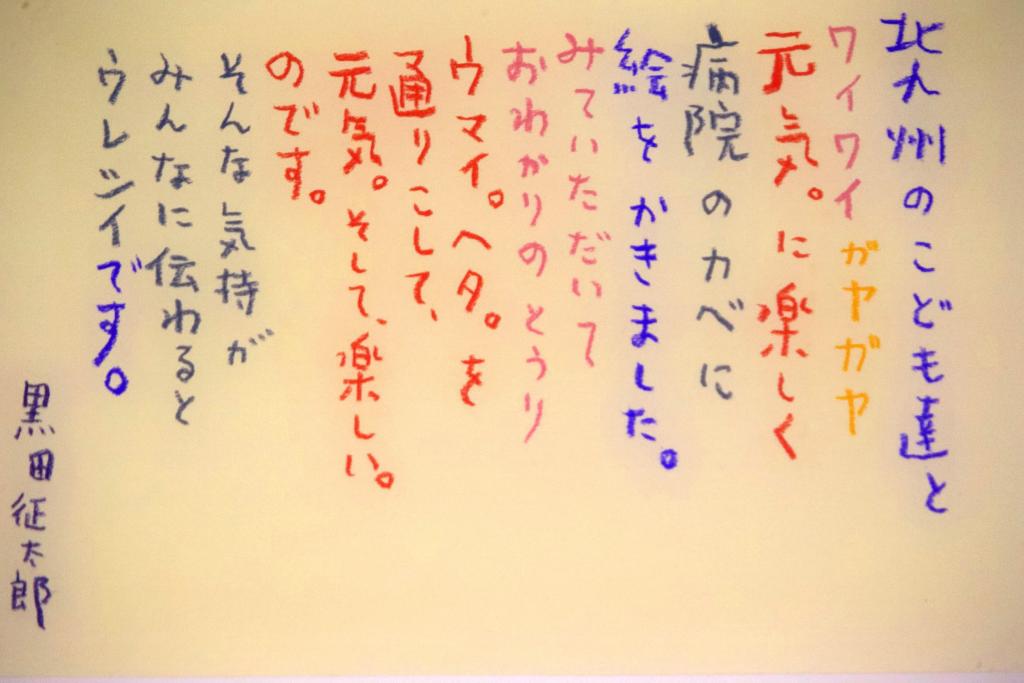 北九州のこども達と
ワイワイガヤガヤ
元気。に楽しく
病院のカベに
絵をかきました。
みていただいて
おわかりのとうり
ウマイ。ヘタ。を
通りこして、
元気。そして、楽しい。
のです。
そんな気持が
みんなに伝わると
ウレシイです。
黒田征太郎